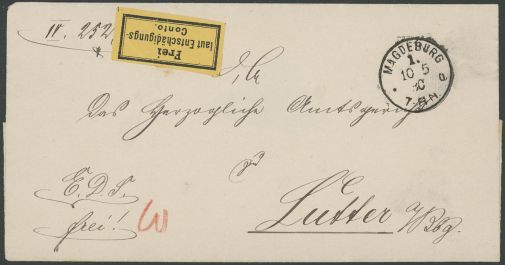 IV. 252
Frei
laut Entschädigungs-
Conto.
MAGDEBURG
1.
10 5
80
7-8 N.
An
Das Herzogliche Amtsgericht
zu
E. D. S.
frei!
Lutter a/Bbg.